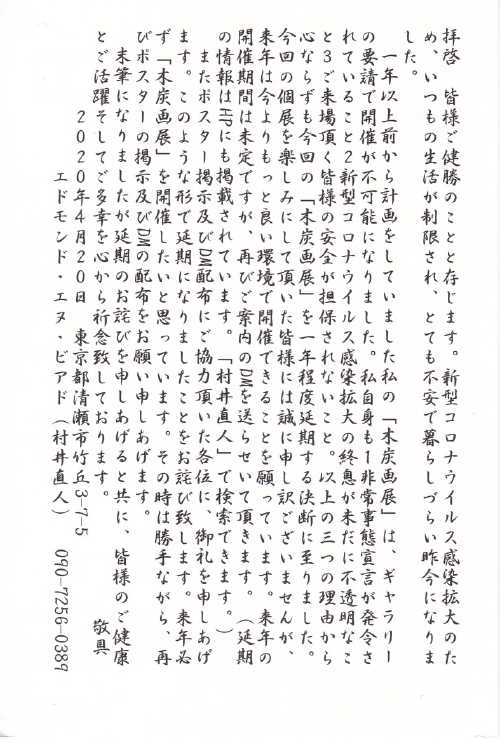 拝啓　皆様ご健勝のことと存じます。新型コロナウイルス感染拡大のた
め、いつもの生活が制限され、とても不安で暮らしづらい昨今になりま
した。
　一年以上前から計画をしていました私の「木炭画展」は、ギャラリー
の要請で開催が不可能になりました。私自身も1非常事態宣言が発令さ
れていること2新型コロナウイルス感染拡大の終息が未だに不透明なこ
と3ご来場頂く皆様の安全が担保されないこと。以上の三つの理由から
心ならずも今回の「木炭画展」を一年程度延期する決断に至りました。
今回の個展を楽しみにして頂いた皆様には誠に申し訳ございませんが、
来年は今よりもっと良い環境で開催できることを願っています。来年の
開催期間は未定ですが、再びご案内のDMを送らせいて頂きます。（延期
の情報はHPにも掲載されています。「村井直人」で検索できます。）
　またポスター掲示及びDM配布にご協力頂いた各位に、御礼を申しあげ
ます。このような形で延期になりましたことをお詫び致します。来年必
ず「木炭画展」を開催したいと思っています。その時は勝手ながら、再
びポスターの掲示及びDMの配布をお願い申しあげます。
　末筆になりましたが延期のお詫びを申しあげると共に、皆様のご健康
とご活躍そしてご多幸を心から祈念致しております。　敬具
2020年4月20日　東京都清瀬市竹丘3-7-5
エドモンド・エヌ・ビアド（村井直人）　090-7256-0389